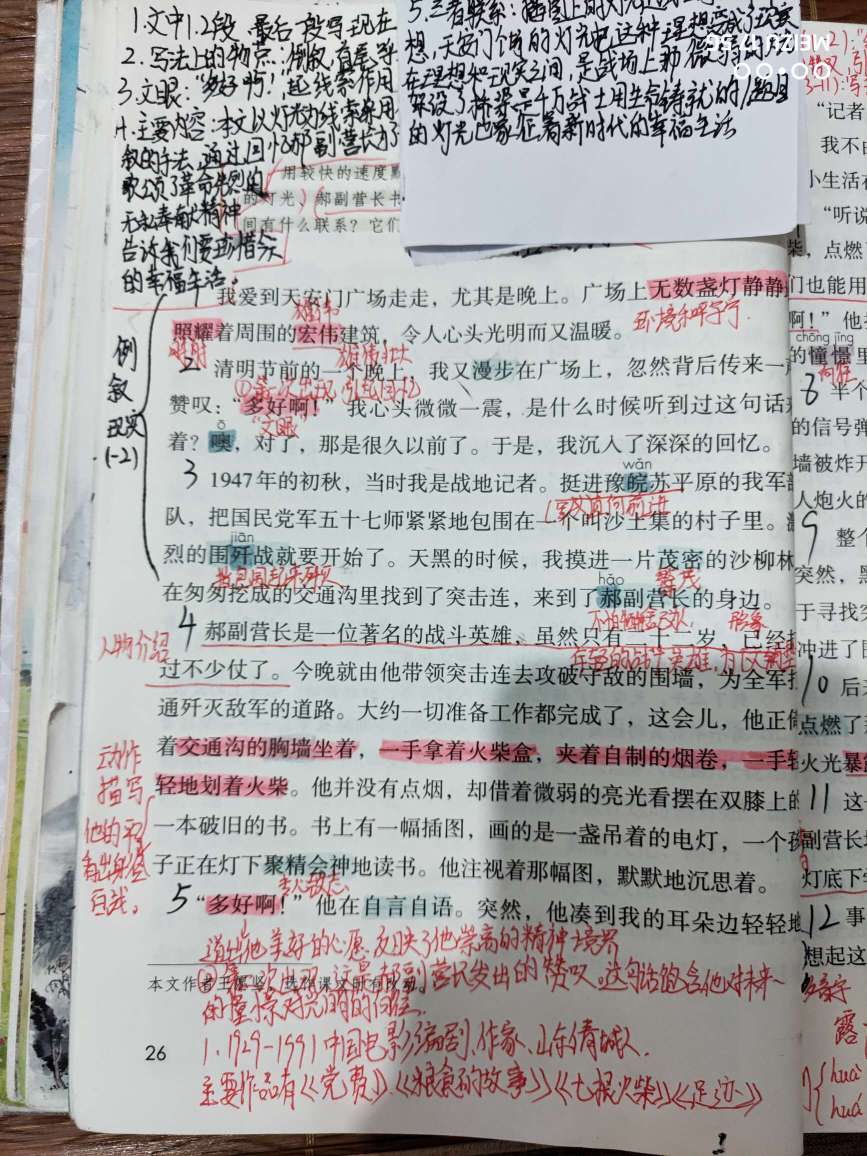 1.文中1.2段,最后一段写现在
2.写法上的特点:倒叙,首尾呼
3.文眼:“多好啊!”起线索作用
4.主要内容:本文以灯光为线索采用
叙的手法,通过回忆郝副营长为了
歌颂了革命先烈的
无私奉献精神
告诉我们要珍惜今
的幸福生活。
5.三者联系:插图上的灯光是
想,天安门个前的灯光把这种理想变成了现实
在理想和现实之间,是战场上那微弱的
架设了桥梁是千万战士用生命铸就的/题目
的灯光也象征着新时代的幸福生活
用较快的速度默
的灯光、郝副营长书
间有什么联系?它们
我爱到天安门广场走走,尤其是晚上。广场上无数盏灯静静
照耀着周围的宏伟建筑,令人心头光明而又温暖。
环境和平宁
雄伟壮大
2 清明节前的一个晚上,我又漫步在广场上,忽然背后传来一
赞叹:“多好啊!”我心头微微一震,是什么时候听到过这句话
“文眼”
ō
着?噢,对了,那是很久以前了。于是,我沉入了深深的回忆。
倒叙
现实
(1-2)
wǎn
3 1947年的初秋,当时我是战地记者。挺进豫皖苏平原的我军
队,把国民党军五十七师紧紧地包围在一个叫沙土集的村子里。激
jiān
烈的围歼战就要开始了。天黑的时候,我摸进一片茂密的沙柳林
hǎo
在匆匆挖成的交通沟里找到了突击连,来到了郝副营长的身边。
人物介绍
4 郝副营长是一位著名的战斗英雄,虽然只有二十二岁,已经打
过不少仗了。今晚就由他带领突击连去攻破守敌的围墙,为全军打
通歼灭敌军的道路。大约一切准备工作都完成了,这会儿,他正倚
着交通沟的胸墙坐着,一手拿着火柴盒,夹着自制的烟卷,一手轻
轻地划着火柴。他并没有点烟,却借着微弱的亮光看摆在双膝上的
一本破旧的书。书上有一幅插图,画的是一盏吊着的电灯,一个孩
子正在灯下聚精会神地读书。他注视着那幅图,默默地沉思着。
动作
描写
他的平
看出身经
百战。
专心致志
5 “多好啊!”他在自言自语。突然,他凑到我的耳朵边轻轻地
道出他美好的心愿,反映了他崇高的精神境界
这是郝副营长发出的赞叹。这句话饱含他对未来
的憧憬对光明的向往.
26
1.1929-1991中国电影编剧、作家、山东诸城人.
主要作品有《党费》、《粮食的故事》《七根火柴》《足迹》
“记者
我不由
小生活
“听说
柴,点燃了
们也能用
啊!”他
chōng jǐng
的憧憬里
向往
8 半个
的信号弹
墙被炸开
人炮火的
9 整个
突然,黑
于寻找突
冲进了围
10 后
点燃了
火光暴
11 这
副营长
灯底下学
12 事
想起这
多音字
露
huà
huá